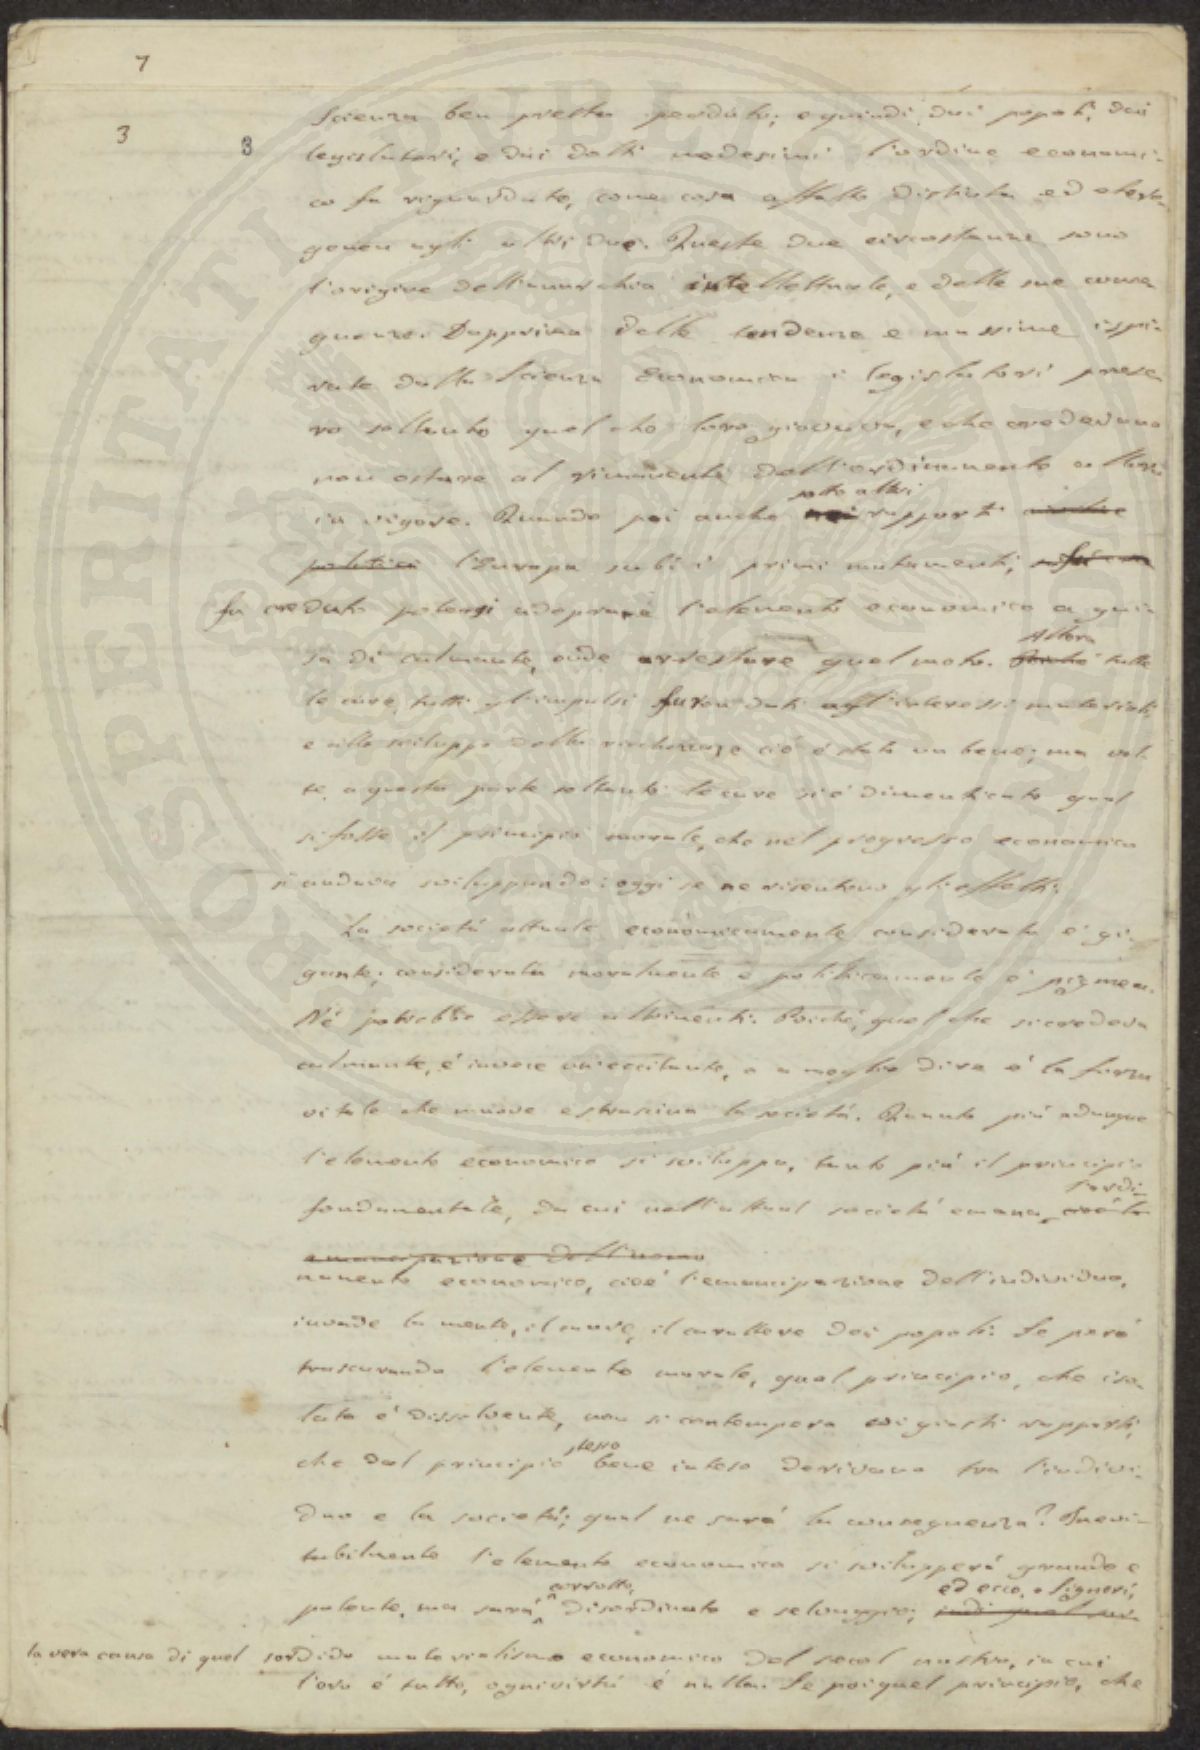 7
3 3
scienza ben presto perduto; e quindi dai popoli, dai
legislatori, e dai dotti medesimi l'ordine economi-
co fu riguardato, come cosa affatto distinta ed etero-
genea agli altri due. Queste due circostanze sono
l'origine dell'anarchia intellettuale, e delle sue conse-
guenze. Dapprima delle tendenze e massime ispi-
rate dalla Scienza Economica i legislatori prese-
ro soltanto quel che loro giovava, e che credevano
non ostare al rimanente dell'ordinamento allora
sotto altri
in vigore. Quando poi anche nei rapporti civili e
politici l'Europa subì i primi mutamenti,
fu creduto potersi adoprare l'elemento economico a gui-
Allora
sa di calmante, onde arrestare quel moto. Perchè tutte
le cure, tutti gl'impulsi furon dati agl'interessi materiali,
e allo sviluppo delle ricchezze ciò è stato un bene; ma vol-
te a questa parte soltanto le cure si è dimenticato qual
si fosse il principio morale, che nel progresso economico
si andava sviluppando: oggi se ne risentono gli effetti.
La società attuale economicamente considerata è gi-
gante; considerata moralmente e politicamente è pigmea.
Nè potrebbe essere altrimenti. Poichè, quel che si credeva
calmante, è invece un eccitante, o a meglio dire è la forza
vitale che muove e strascina la società. Quanto più adunque
l'elemento economico si sviluppa, tanto più il principio
l'ordi-
fondamentale, da cui nell'attual società emana, cioè la
emancipazione dell'uomo
namento economico, cioè l'emancipazione dell'individuo,
invade la mente, il cuore, il carattere dei popoli. Se però
trascurando l'elemento morale, qual principio, che iso-
lato è dissolvente, non si contempera coi giusti rapporti,
stesso
che dal principio bene inteso derivano tra l'indivi-
duo e la società; qual ne sarà la conseguenza? Inevi-
tabilmente l'elemento economico si svilupperà grande e
corrotto, ed ecco, o Signori,
potente, ma sarà disordinato e selvaggio;
la vera causa di quel sordido materialismo economico del secol nostro, in cui
l'oro è tutto, ogni virtù è nulla. Se poi quel principio, che
PROSPERITATI PUBLICAE AUGENDAE